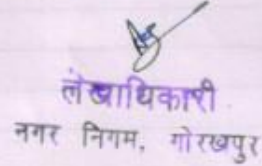 लेखाधिकारी
नगर निगम, गोरखपुर